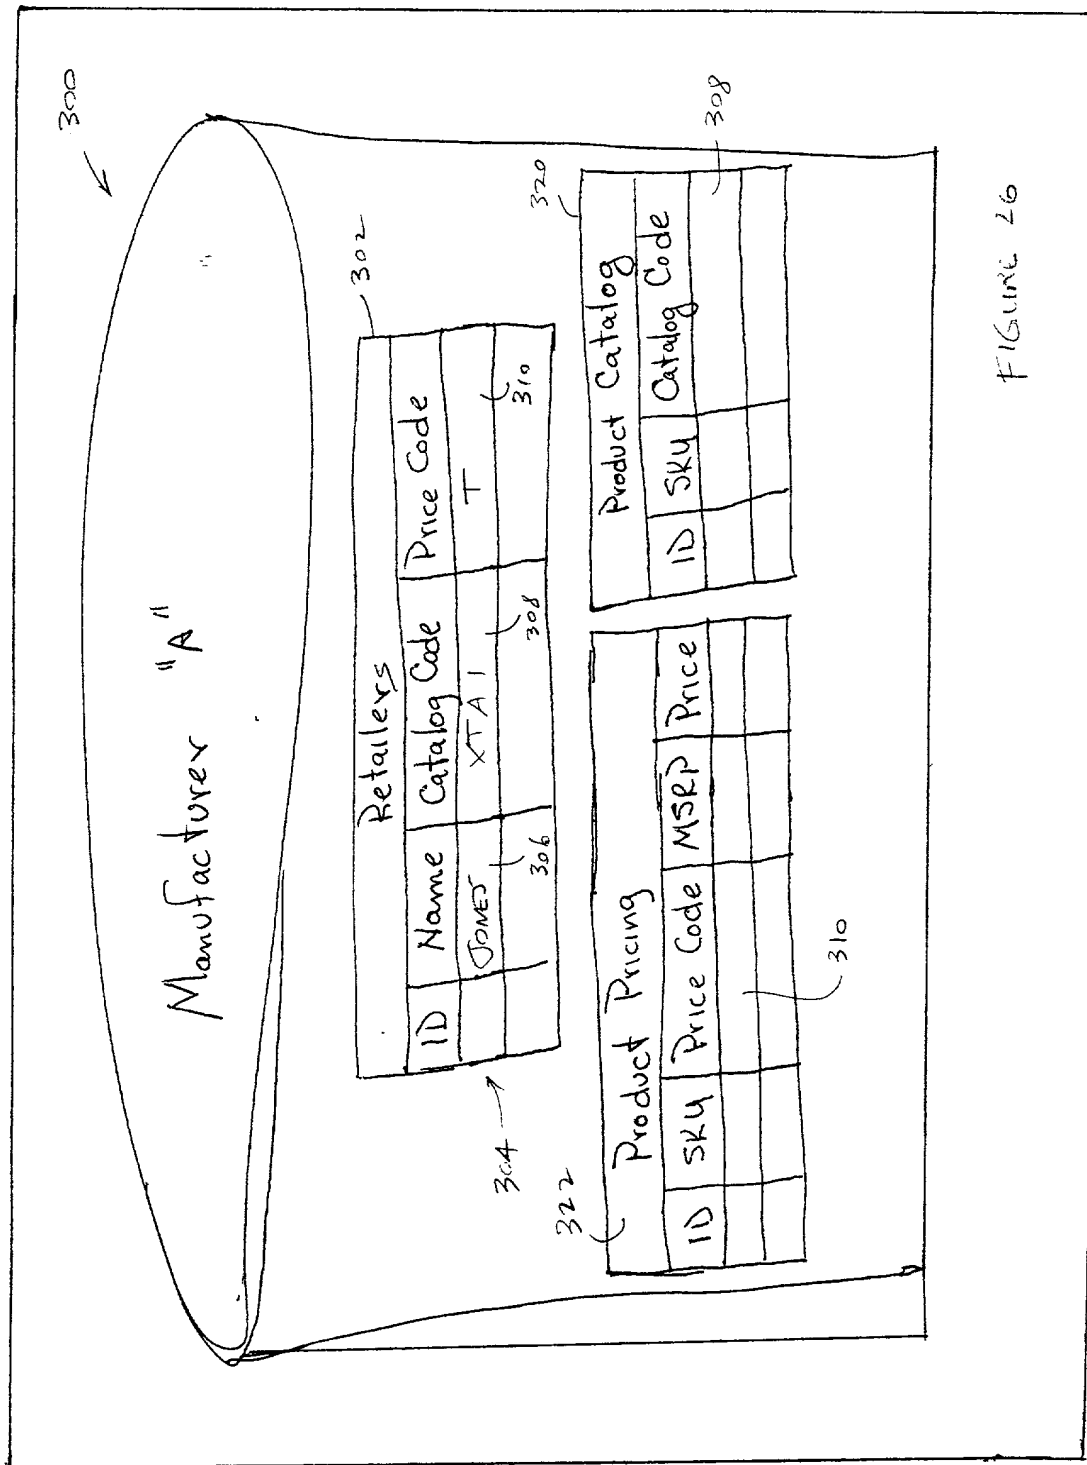 300
Manufacturer "A"
302
Retailers
ID Name Catalog Code Price Code
JONES XTA1 T
304
306 308 310
322
320
Product Pricing
ID SKU Price Code MSRP Price
310
Product Catalog
ID SKU Catalog Code
308
FIGURE 26